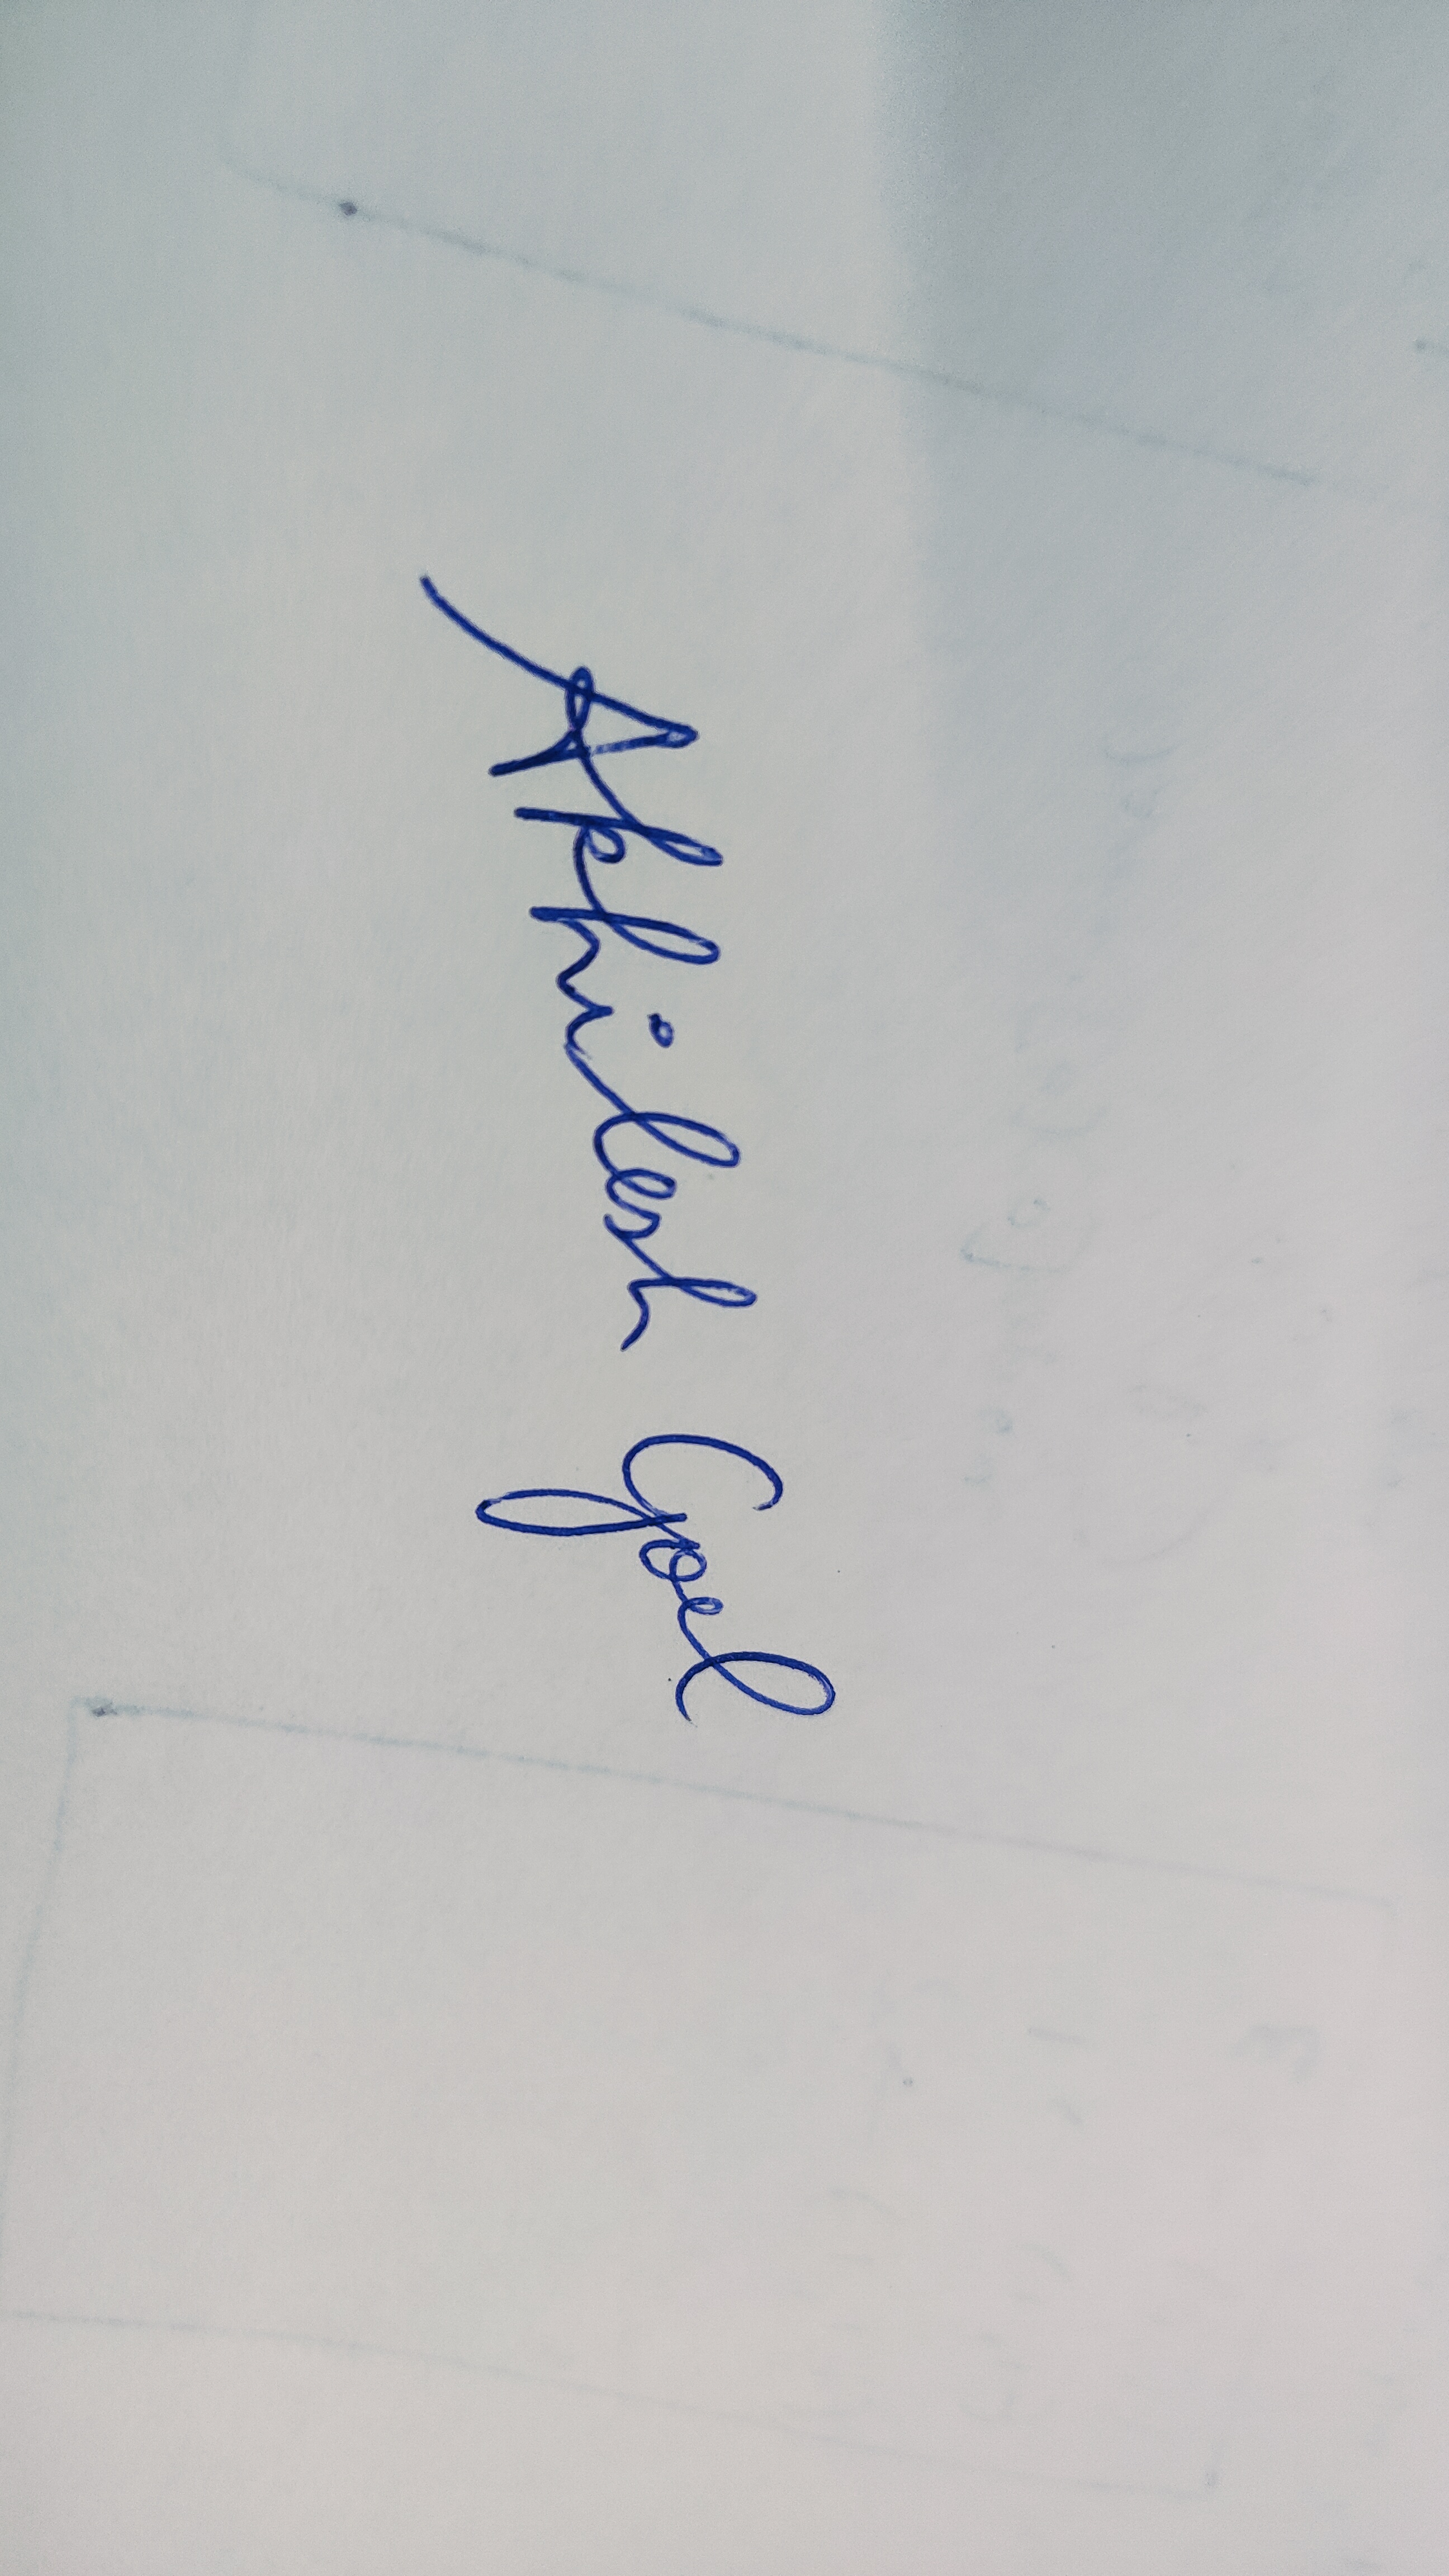 Akhilesh Goel